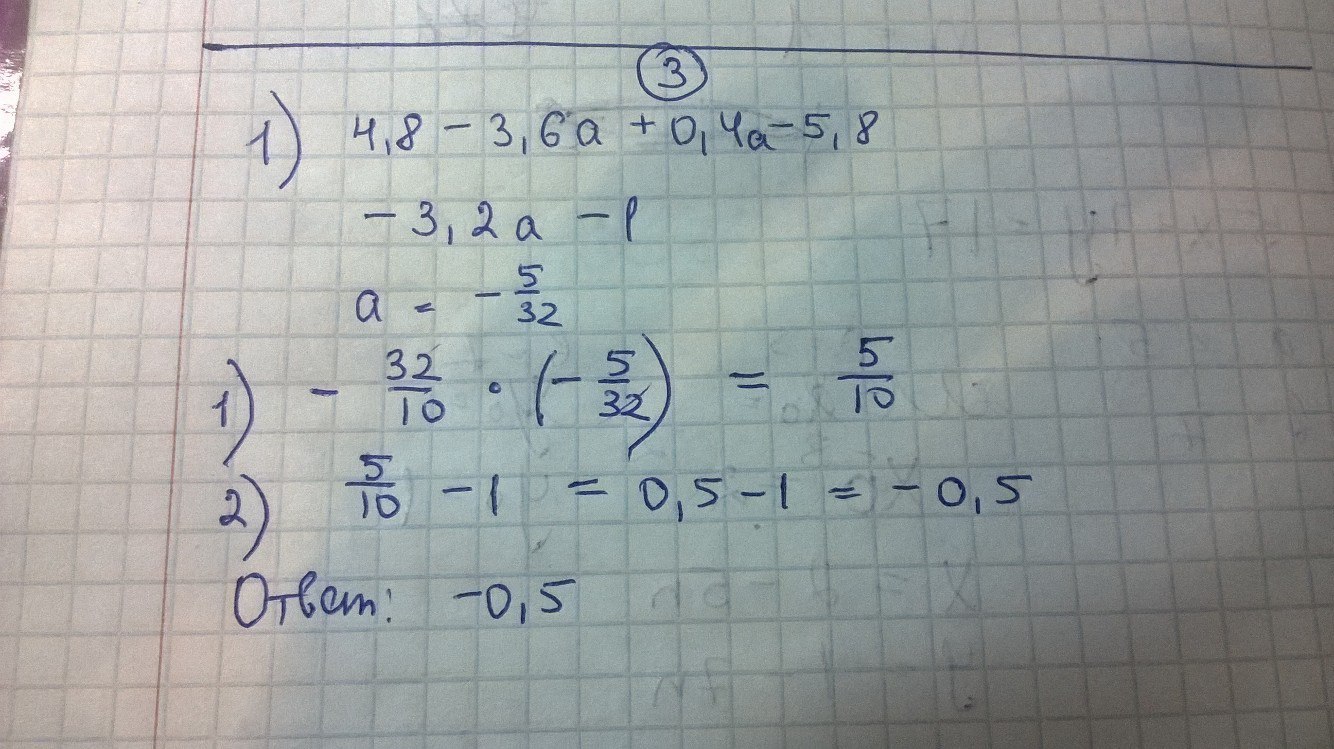 3
1) 4,8 - 3,6a + 0,4a - 5,8
- 3,2a - 1
a = - 5/32
1) - 32/10 · (- 5/32) = 5/10
2) 5/10 - 1 = 0,5 - 1 = - 0,5
Ответ: -0,5